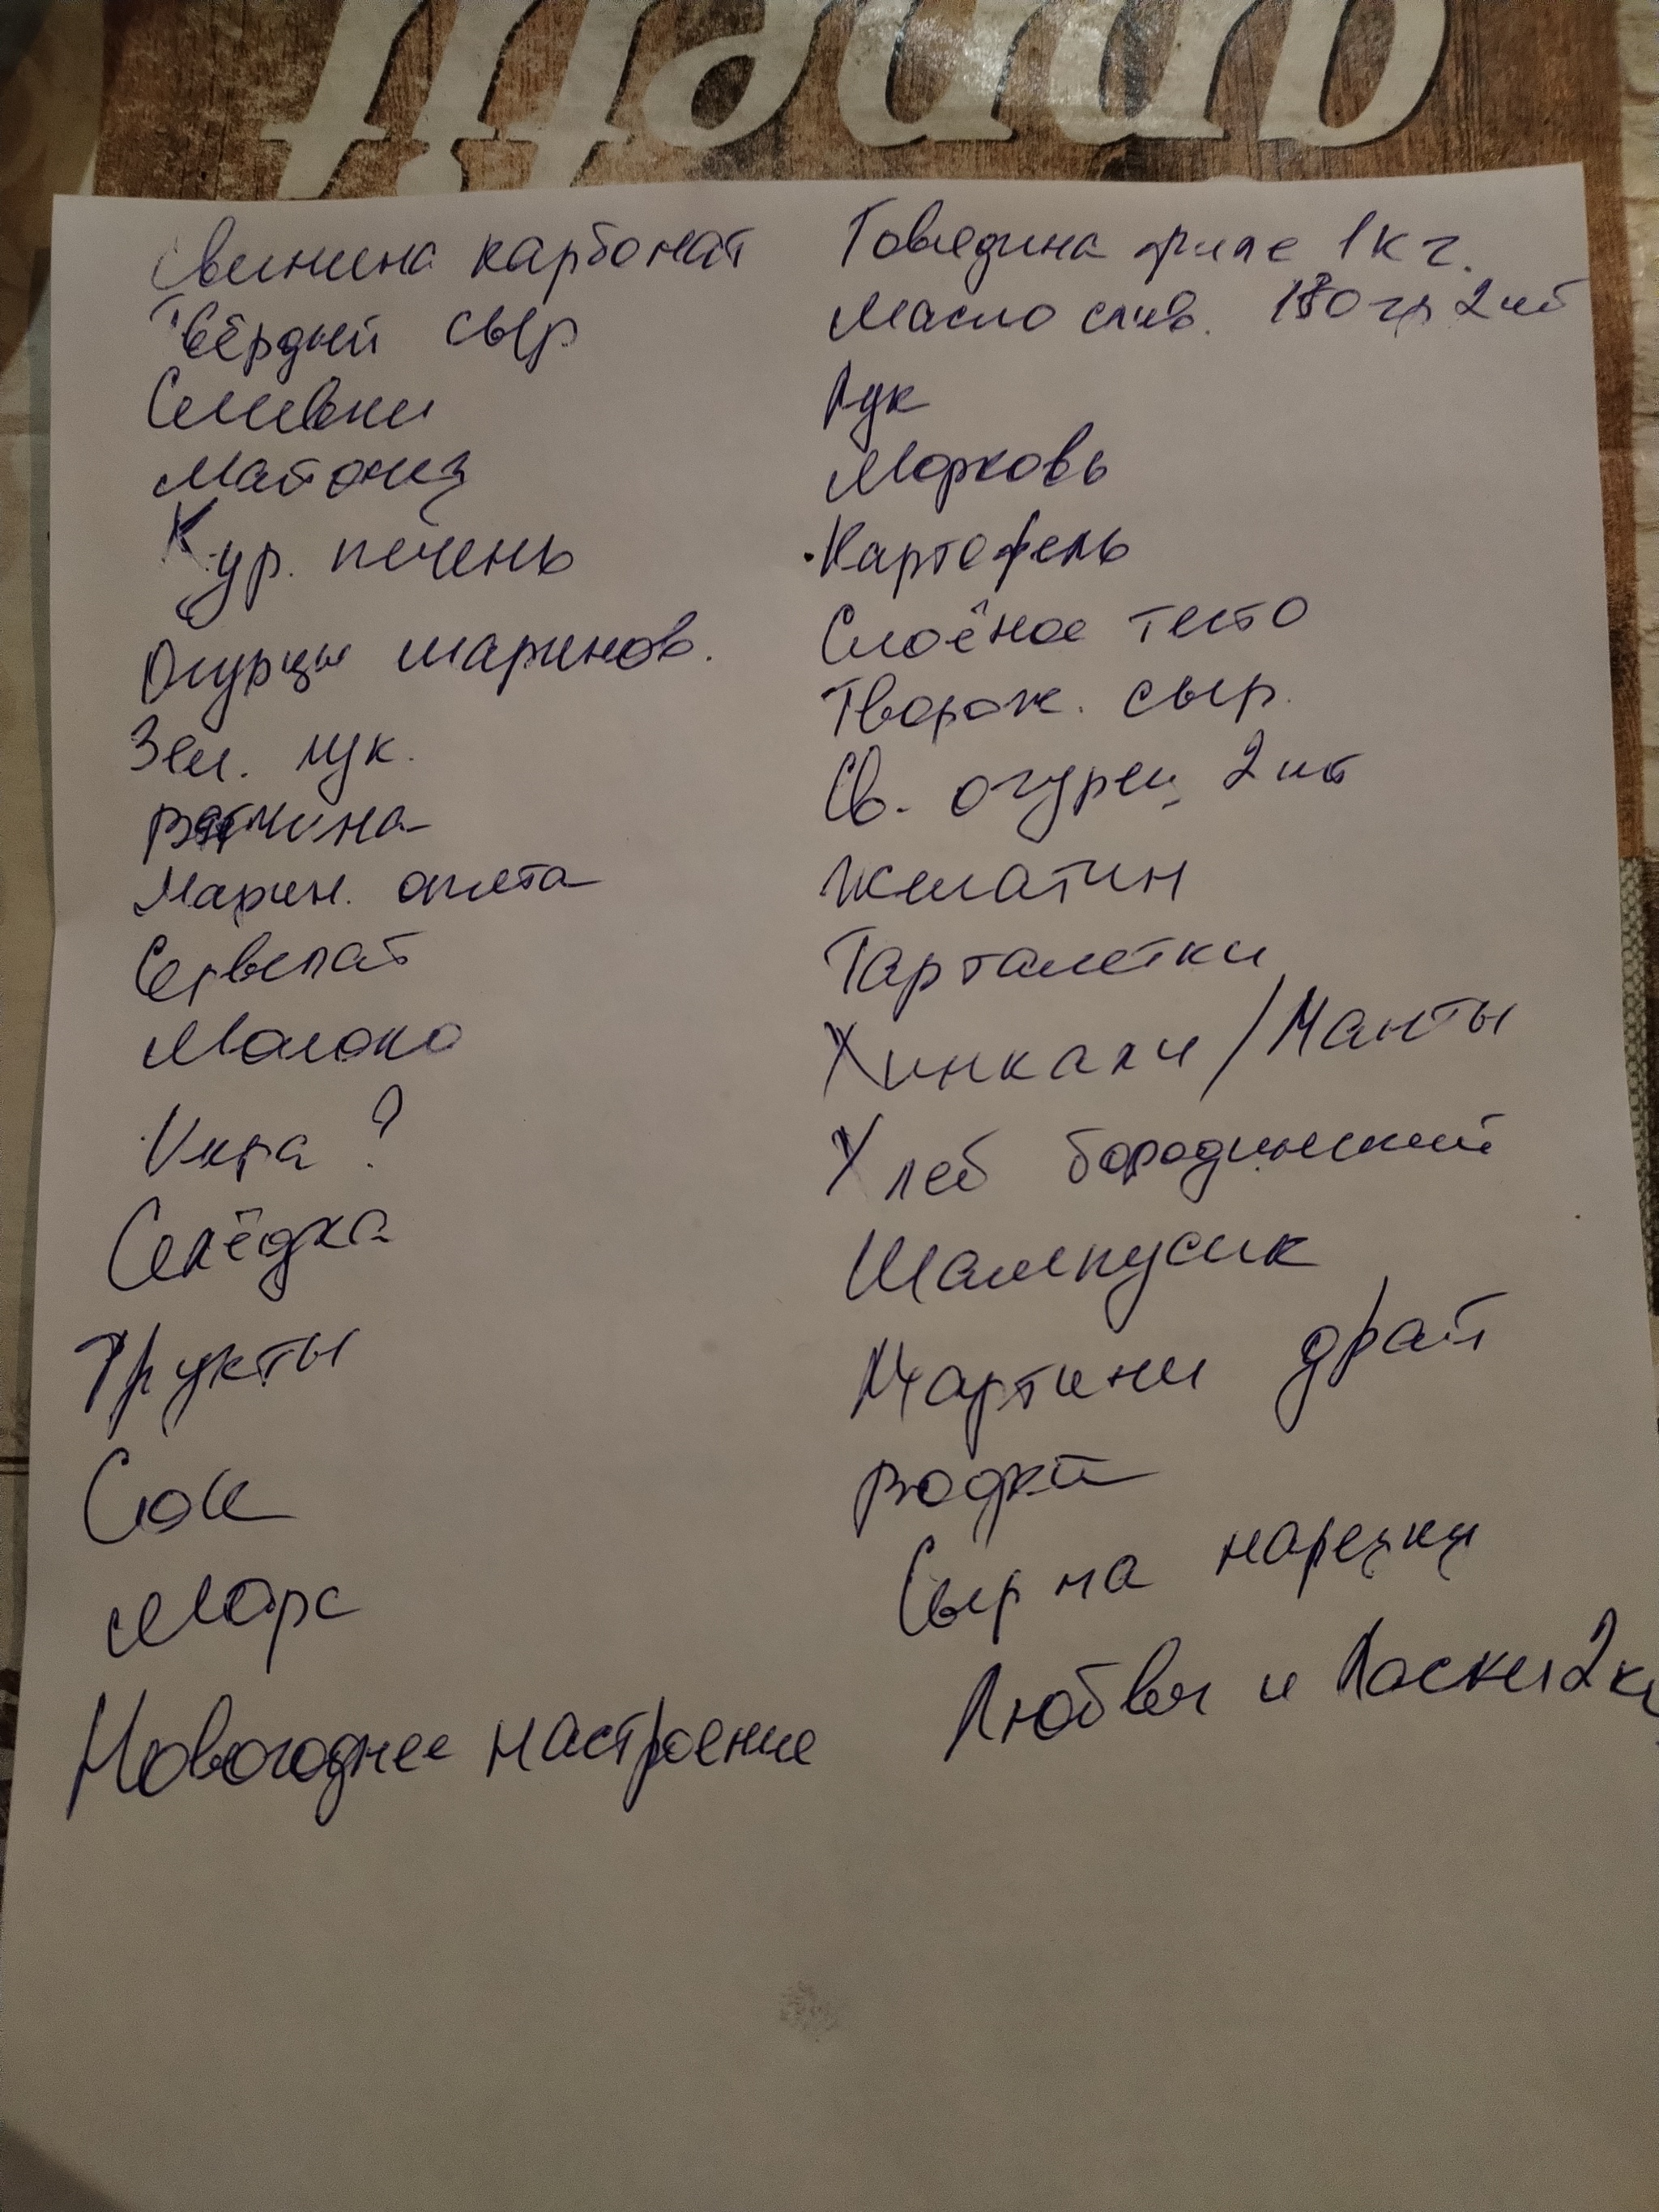 Свинина карбонат
Твёрдый сыр
Сливки
Майонез
Кур. печень
Огурцы маринов.
Зел. лук.
Ветчина
Марин. опята
Сервелат
Молоко
Икра ?
Селёдка
Фрукты
Сок
Морс
Новогоднее настроение
Говядина филе 1кг.
Масло слив. 180гр 2шт
Лук
Морковь
Картофель
Слоёное тесто
Творож. сыр.
Св. огурец 2шт
Желатин
Тарталетки
Хинкали / Манты
Хлеб бородинский
Шампусик
Мартини драй
Водка
Сыр на нарезку
Любви и Ласки 2кг